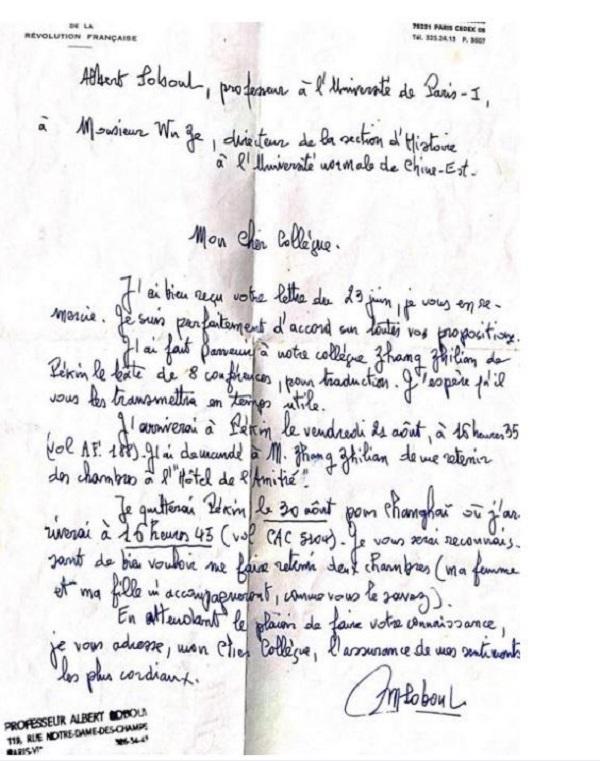 DE LA
RÉVOLUTION FRANÇAISE
75231 PARIS CEDEX 05
Tél. 325.24.13 P.
Albert Soboul, professeur à l'Université de Paris-I,
à Monsieur Wu Ze, directeur de la section d'Histoire
à l'Université normale de Chine-Est.
Mon cher Collègue.
J'ai bien reçu votre lettre du 23 juin, je vous en re-
mercie. Je suis parfaitement d'accord sur toutes vos propositions.
J'ai fait parvenir à notre collègue Zhang Zhilian de
Pékin le texte de 8 conférences, pour traduction. J'espère qu'il
vous les transmettra en temps utile.
J'arriverai à Pékin le vendredi 21 août, à 16 heures 35
(vol AF. ). J'ai demandé à M. Zhang Zhilian de me retenir
des chambres à l'"Hôtel de l'Amitié".
Je quitterai Pékin le 30 août pour Changhaï où j'ar-
riverai à 16 heures 45 (vol CAC ). Je vous serai reconnais-
sant de bien vouloir me faire retenir deux chambres (ma femme
et ma fille m'accompagneront, comme vous le savez).
En attendant le plaisir de faire votre connaissance,
je vous adresse, mon cher Collègue, l'assurance de mes sentiments
les plus cordiaux.
Soboul
PROFESSEUR ALBERT SOBOUL
118, RUE NOTRE-DAME-DES-CHAMPS
PARIS-VIe